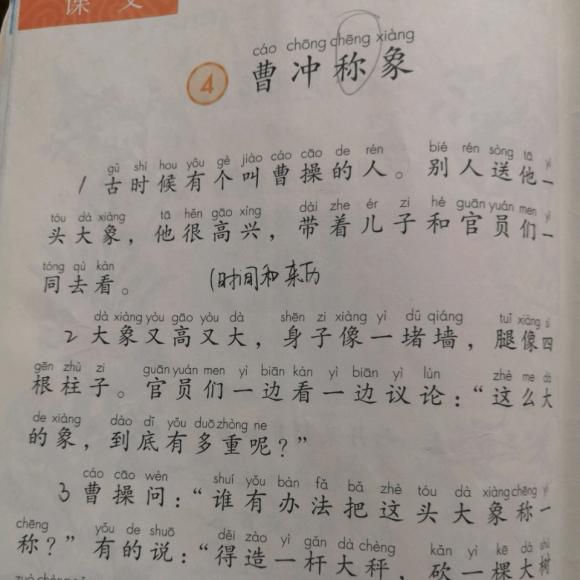 课文
cáo chōng chēng xiàng
4 曹冲称象
gǔ shí hou yǒu gè jiào cáo cāo de rén bié rén sòng tā yì
1 古时候有个叫曹操的人。别人送他一
tóu dà xiàng tā hěn gāo xìng dài zhe ér zi hé guān yuán men yì
头大象，他很高兴，带着儿子和官员们一
tóng qù kàn
同去看。 (时间和东历
dà xiàng yòu gāo yòu dà shēn zi xiàng yì dǔ qiáng tuǐ xiàng sì
2 大象又高又大，身子像一堵墙，腿像四
gēn zhù zi guān yuán men yì biān kàn yì biān yì lùn zhè me dà
根柱子。官员们一边看一边议论：“这么大
de xiàng dào dǐ yǒu duō zhòng ne
的象，到底有多重呢？”
cáo cāo wèn shuí yǒu bàn fǎ bǎ zhè tóu dà xiàng chēng yì
3 曹操问：“谁有办法把这头大象称一
chēng yǒu de shuō děi zào yì gǎn dà chèng kǎn yì kē dà shù
称？”有的说：“得造一杆大秤，砍一棵大树